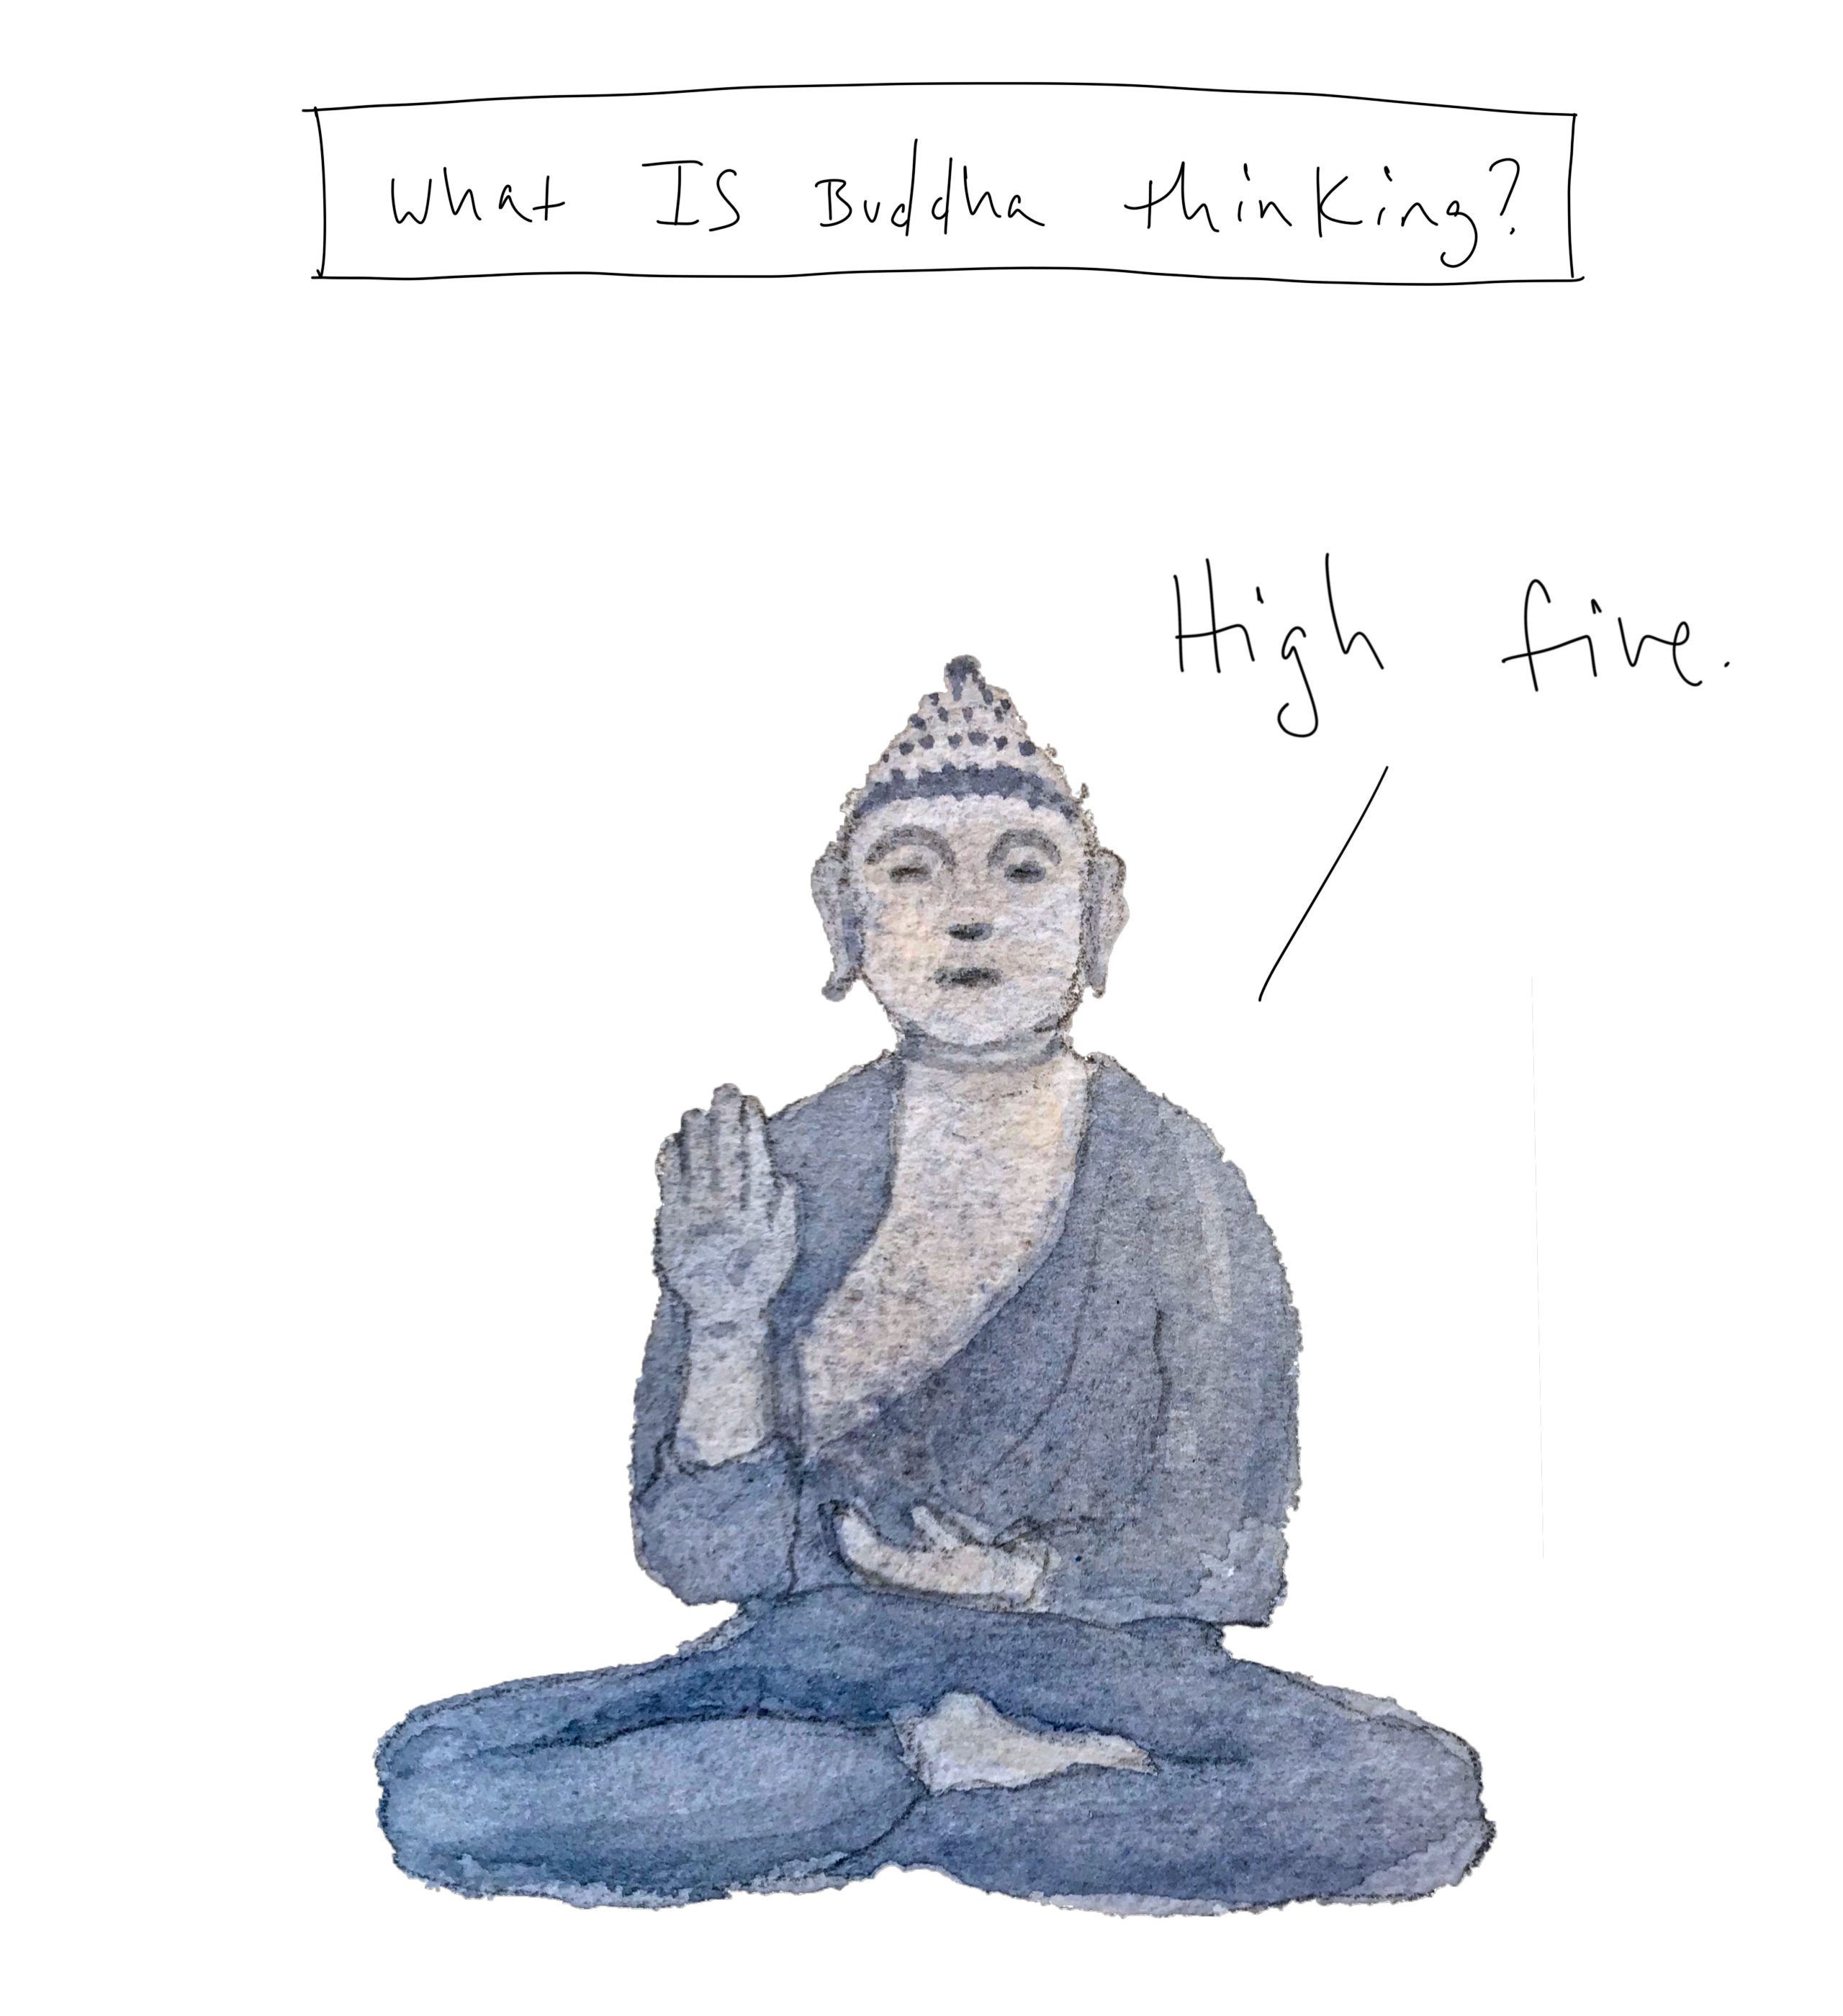 What Is Buddha thinking?
High five.